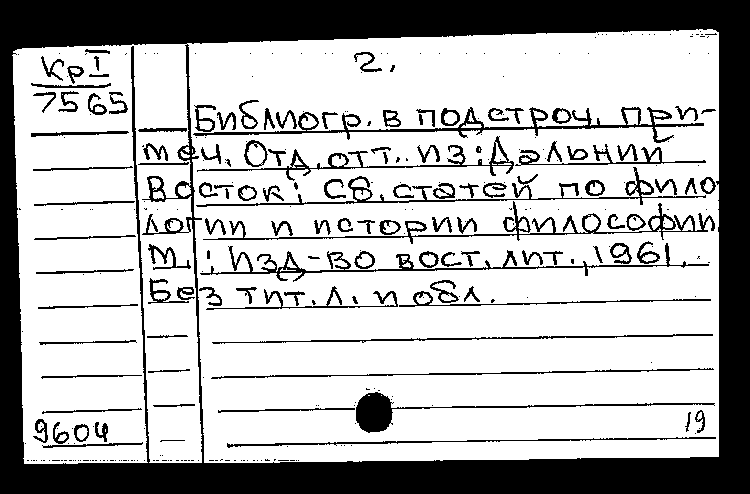 Кр I
2.
7565
Библиогр. в подстроч. при-
меч. Отд. отт. из: Дальний
Восток: Сб. статей по фило-
логии и истории философии.
М.: Изд-во вост. лит., 1961.
Без тит. л. и обл.
9604
19